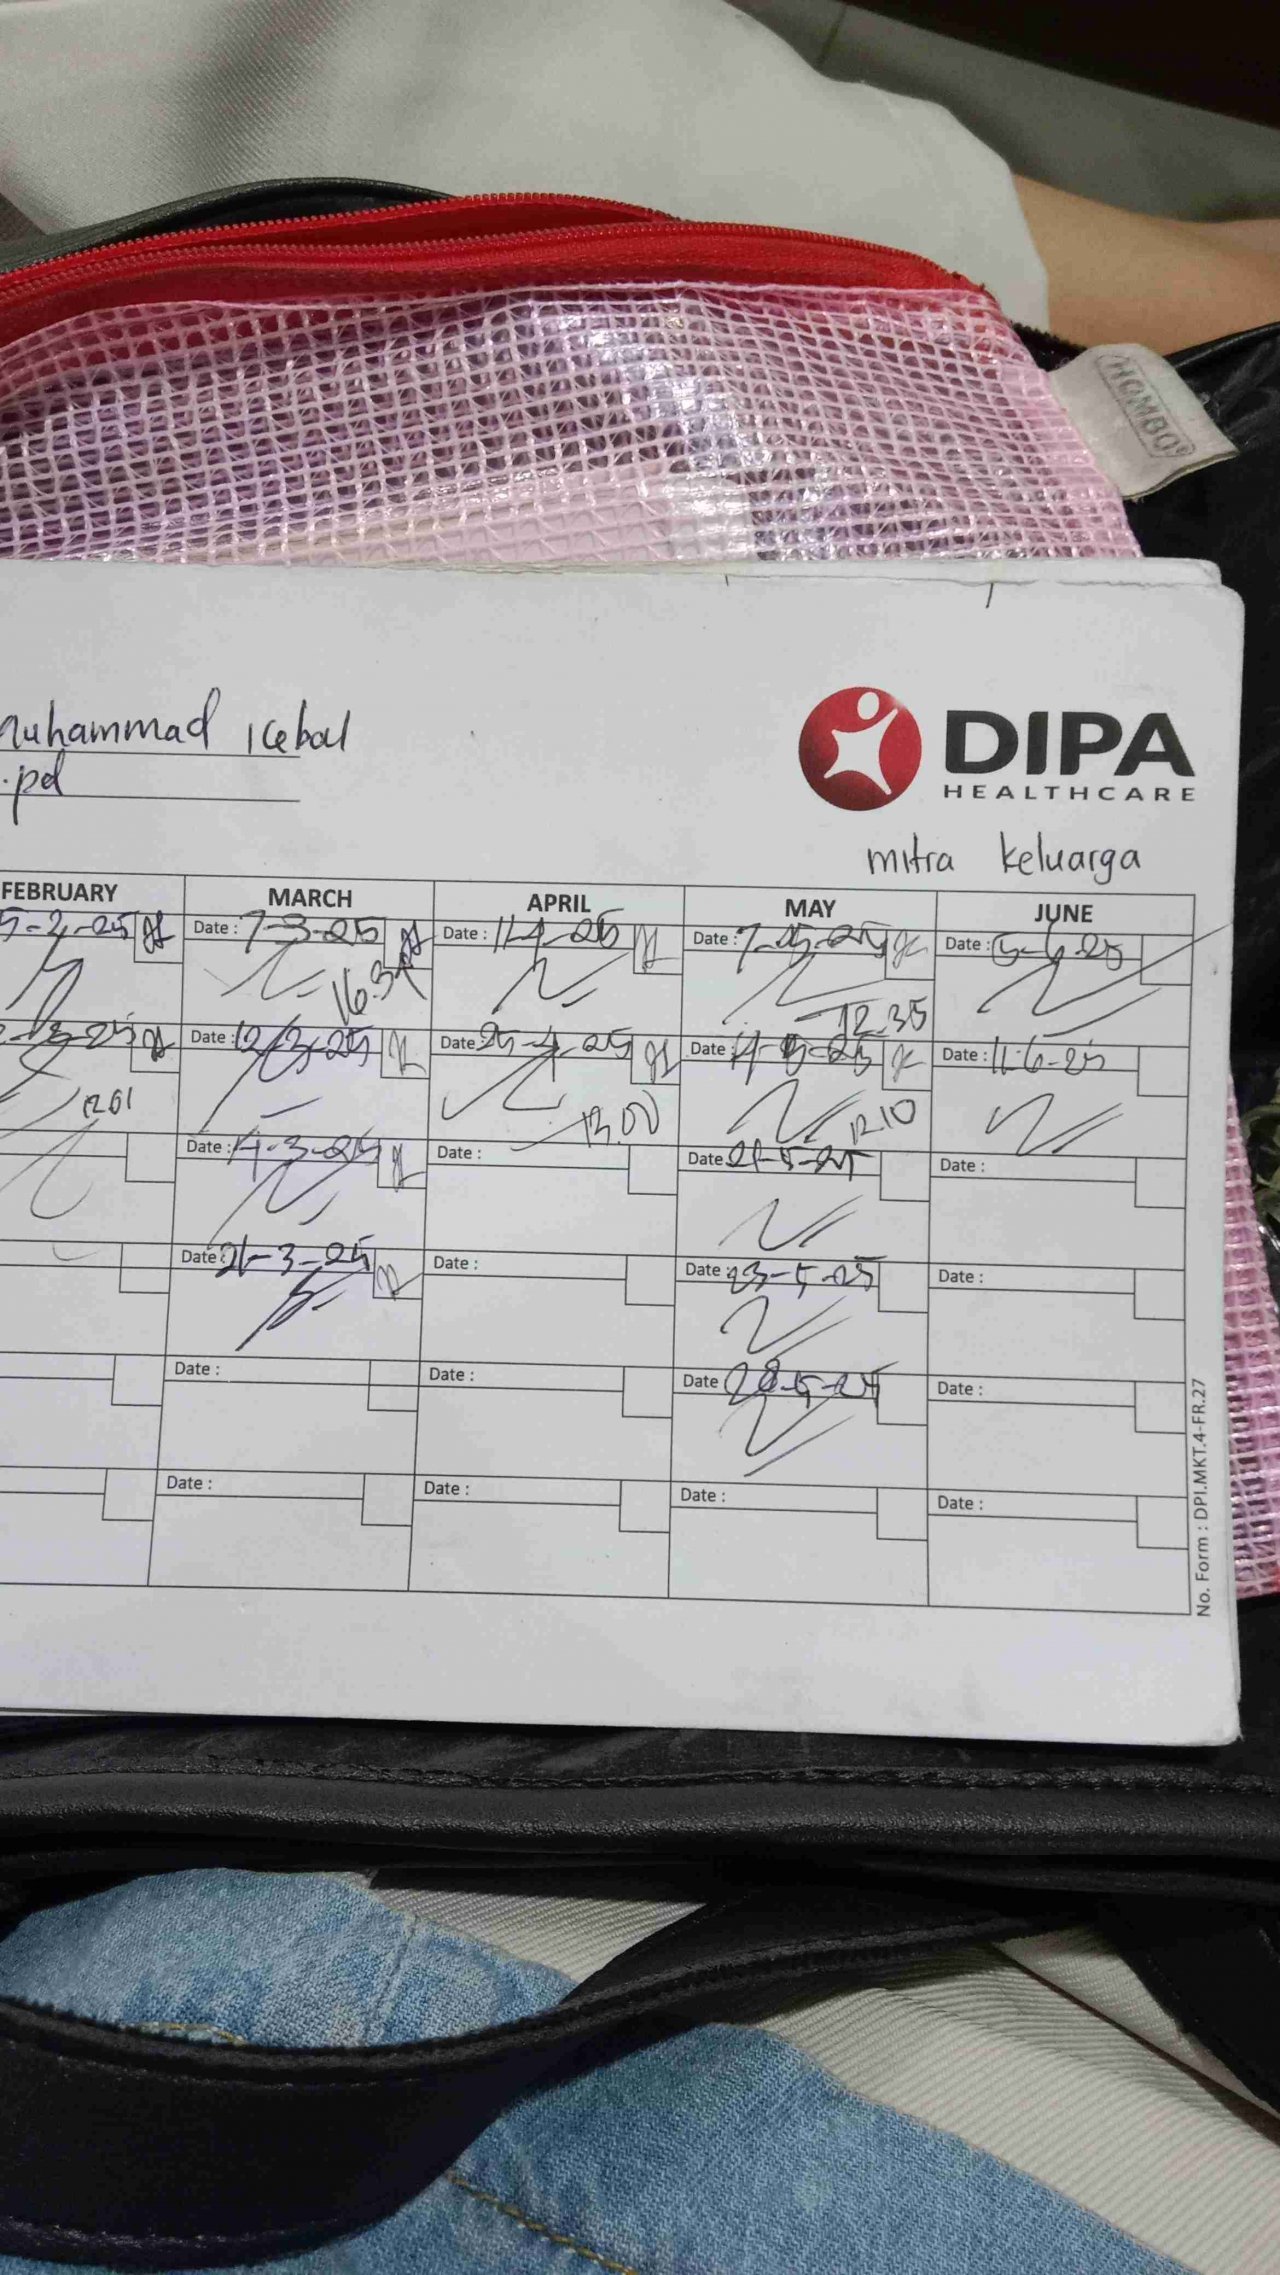 HOMBO
muhammad Icebal
.pd
DIPA
HEALTHCARE
mitra keluarga
FEBRUARY MARCH APRIL MAY JUNE
5-2-25 Date : 7-3-25 Date : 11-4-25 Date : 7-05-25 Date : 5-6-25
16.37 12.35
Date : 12-3-25 Date 25-4-25 Date : 14-5-25 Date : 11-6-25
12.01 13.00 12.10
Date : 14-3-25 Date : Date 21-5-25 Date :
Date : 21-3-25 Date : Date 23-5-25 Date :
Date : Date : Date 28-5-25 Date :
Date : Date : Date : Date :
No. Form : DPI.MKT.4-FR.27